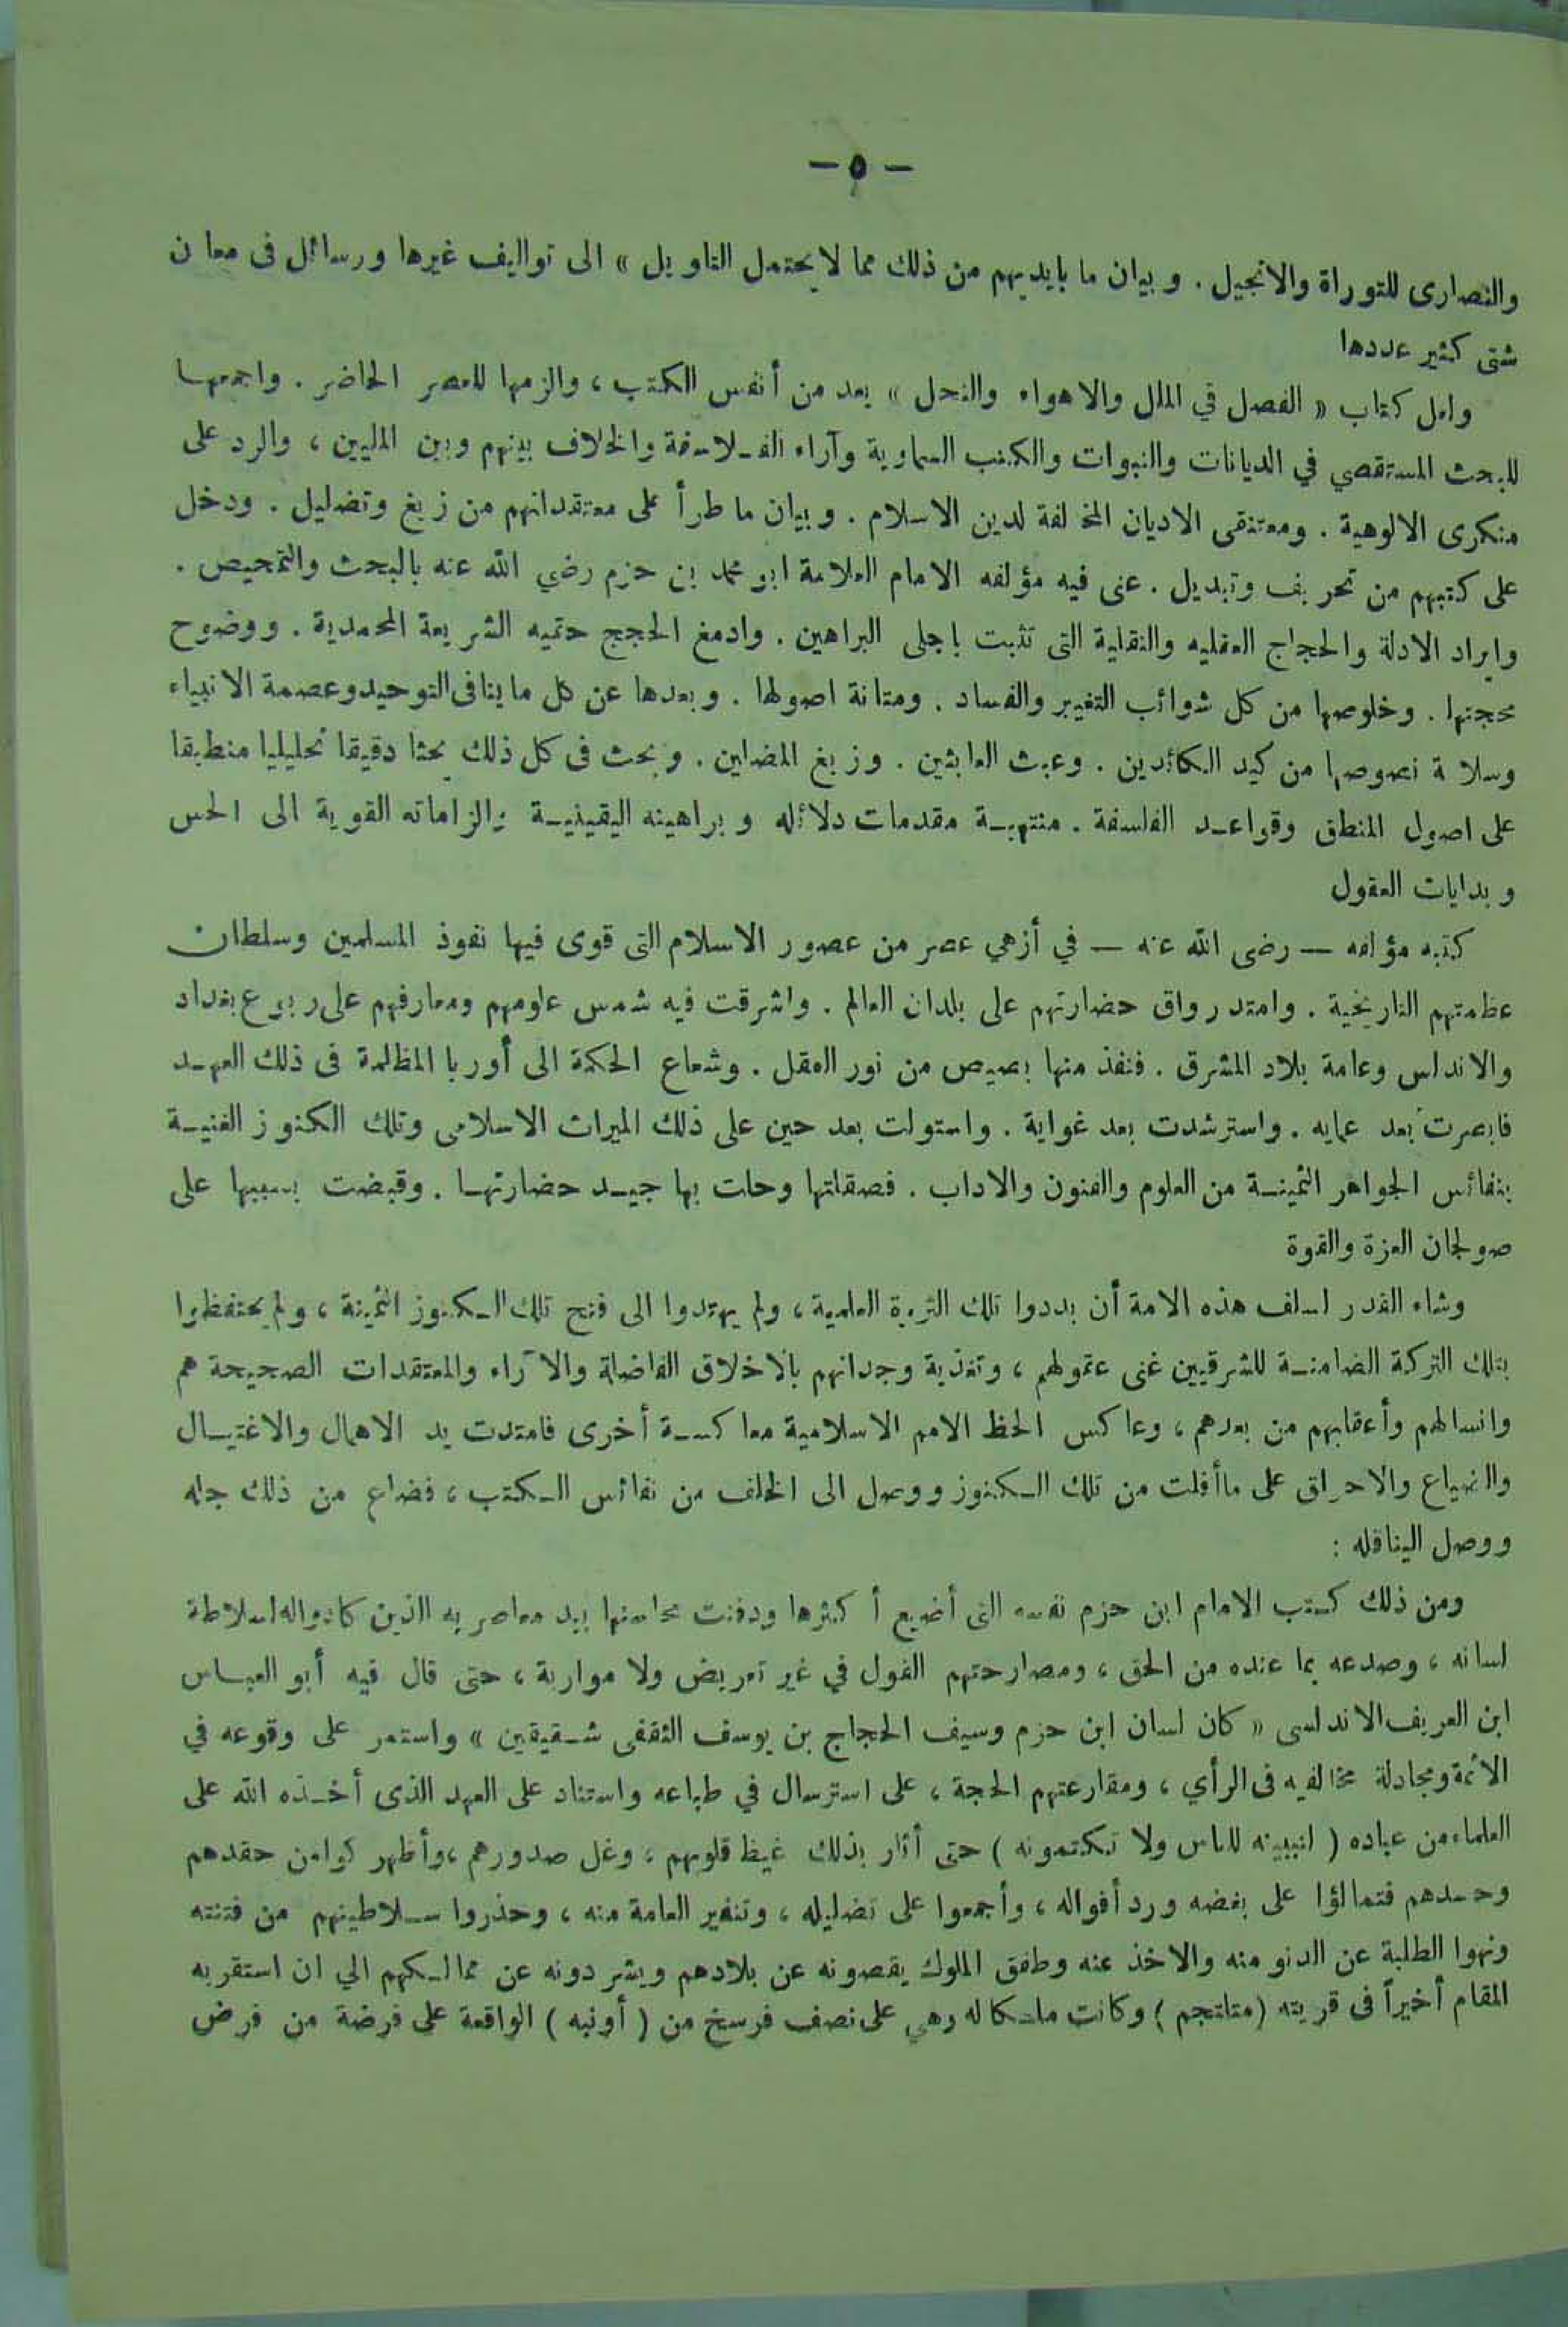 — ٥ —
والنصارى للتوراة والانجيل . و بيان ما بايديهم من ذلك مما لا يحتمل التاويل » الى تواليف غيرها ورسائل فى معان
شتى كثير عددها
ولعل كتاب « الفصل في الملل والاهواء والنحل » يعد من أنفس الكتب ، والزمها للعصر الحاضر . واجمعها
للبحث المستقصي في الديانات والنبوات والكتب السماوية وآراء الفلاسفة والخلاف بينهم وبين المليين ، والرد على
منكرى الالوهية . ومعتنقى الاديان المخالفة لدين الاسلام . و بيان ما طرأ على معتقداتهم من زيغ وتضليل . ودخل
على كتبهم من تحريف وتبديل . عنى فيه مؤلفه الامام العلامة ابو محمد بن حزم رضي الله عنه بالبحث والتمحيص .
وايراد الادلة والحجاج العقليه والنقلية التى تثبت باجلى البراهين . وادمغ الحجج حتميه الشريعة المحمدية . ووضوح
محجتها . وخلوصها من كل شوائب التغيير والفساد . ومتانة اصولها . وبعدها عن كل ما ينافى التوحيد وعصمة الانبياء
وسلامة نصوصها من كيد الكائدين . وعبث العابثين . وزيغ المضلين . وبحث فى كل ذلك بحثا دقيقا تحليليا منطبقا
على اصول المنطق وقواعد الفلسفة . منتهية مقدمات دلائله و براهينه اليقينية والزاماته القوية الى الحس
و بدايات العقول
كتبه مؤلفه — رضى الله عنه — في أزهي عصر من عصور الاسلام التى قوى فيها نفوذ المسلمين وسلطان
عظمتهم التاريخية . وامتد رواق حضارتهم على بلدان العالم . واشرقت فيه شمس علومهم ومعارفهم على ربوع بغداد
والاندلس وعامة بلاد المشرق . فنفذ منها بصيص من نور العقل . وشعاع الحكمة الى أوربا المظلمة فى ذلك العهد
فابصرت بعد عمايه . واسترشدت بعد غواية . واستولت بعد حين على ذلك الميراث الاسلامى وتلك الكنوز الغنية
بنفائس الجواهر الثمينة من العلوم والفنون والاداب . فصقلتها وحلت بها جيد حضارتها . وقبضت بسببها على
صولجان العزة والقوة
وشاء القدر لسلف هذه الامة أن بددوا تلك الثروة العلمية ، ولم يهتدوا الى فتح تلك الكنوز الثمينة ، ولم يحتفظوا
بتلك التركة الضامنة للشرقيين غنى عقولهم ، وتغذية وجدانهم بالاخلاق الفاضلة والآراء والمعتقدات الصحيحة هم
وانسالهم وأعقابهم من بعدهم ، وعاكس الحظ الامم الاسلامية معاكسة أخرى فامتدت يد الاهمال والاغتيال
والضياع والاحراق على ماأفلت من تلك الكنوز ووصل الى الخلف من نفائس الكتب ، فضاع من ذلك جله
ووصل اليناقله :
ومن ذلك كتب الامام ابن حزم نفسه التى أضيع أكثرها ودفنت محاسنها بيد معاصريه الذين كادواله لسلاطة
لسانه ، وصدعه بما عنده من الحق ، ومصارحتهم القول في غير تعريض ولا مواربة ، حتى قال فيه أبو العباس
ابن العريف الاندلسى « كان لسان ابن حزم وسيف الحجاج بن يوسف الثقفى شقيقين » واستمر على وقوعه في
الائمة ومجادلة مخالفيه فى الرأي ، ومقارعتهم الحجة ، على استرسال في طباعه واستناد على العهد الذى أخذه الله على
العلماء من عباده ( لتبيننه للناس ولا تكتمونه ) حتى أثار بذلك غيظ قلوبهم ، وغل صدورهم ، وأظهر كوامن حقدهم
وحسدهم فتمالؤا على بغضه ورد أقواله ، وأجمعوا على تضليله ، وتنفير العامة منه ، وحذروا سلاطينهم من فتنته
ونهوا الطلبة عن الدنو منه والاخذ عنه وطفق الملوك يقصونه عن بلادهم ويشردونه عن ممالكهم الي ان استقر به
المقام أخيراً فى قريته ( متلتجم ) وكانت ملكا له وهي على نصف فرسخ من ( أونبه ) الواقعة على فرضة من فرض